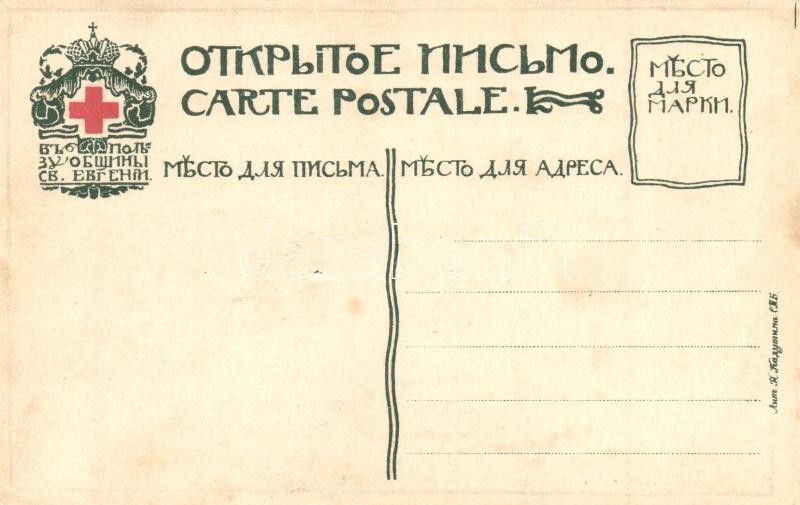 ОТКРЫТОЕ ПИСЬМО.
CARTE POSTALE.
МѢСТО
ДЛЯ
МАРКИ.
ВЪ ПОЛЬ-
ЗУ ОБЩИНЫ
СВ. ЕВГЕНІИ.
МѢСТО ДЛЯ ПИСЬМА.
МѢСТО ДЛЯ АДРЕСА.
darabanth
Лит. Н. Кадушина СПБ